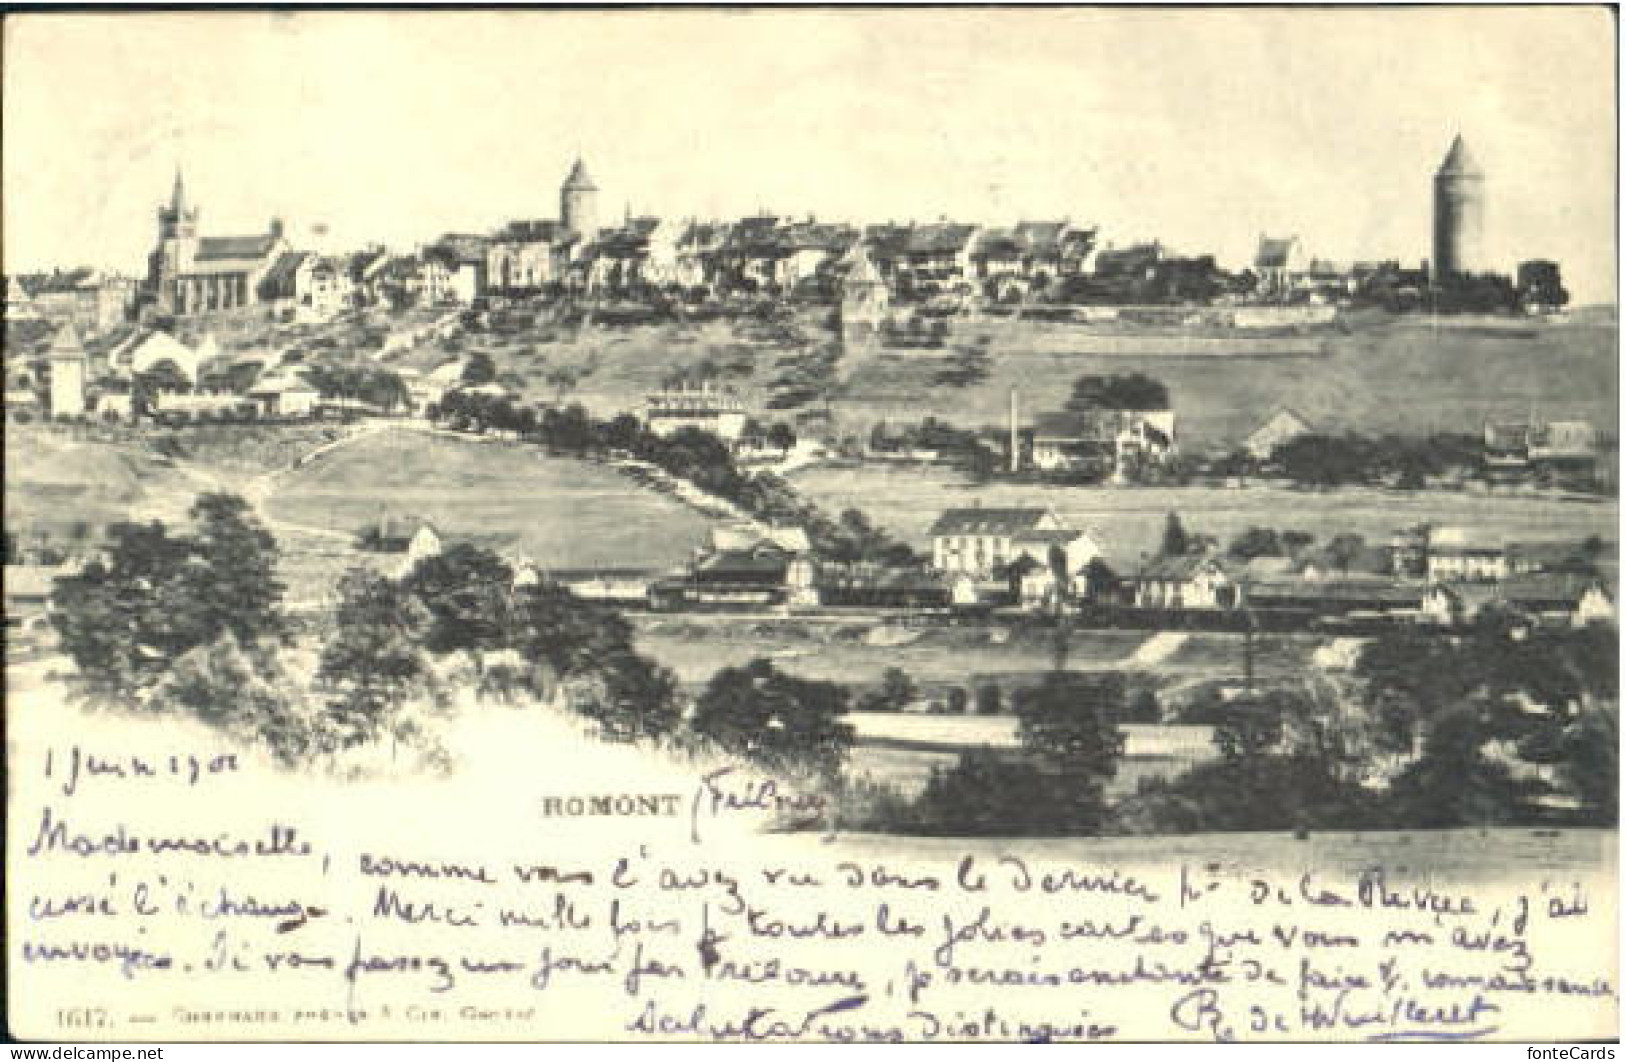 1 Juin 1901
ROMONT (Fribourg)
Mademoiselle, comme vous l'avez vu dans le dernier No de la Revue, j'ai
cessé l'échange. Merci mille fois p. toutes les jolies cartes que vous m'avez
envoyées. Si vous passez un jour par Fribourg, je serais enchantée de faire v. connaissance.
Salutations distinguées
R. de Wuilleret
1617. — CHARNAUX FRÈRES & Cie, GENÈVE
fonteCards
delcampe.net